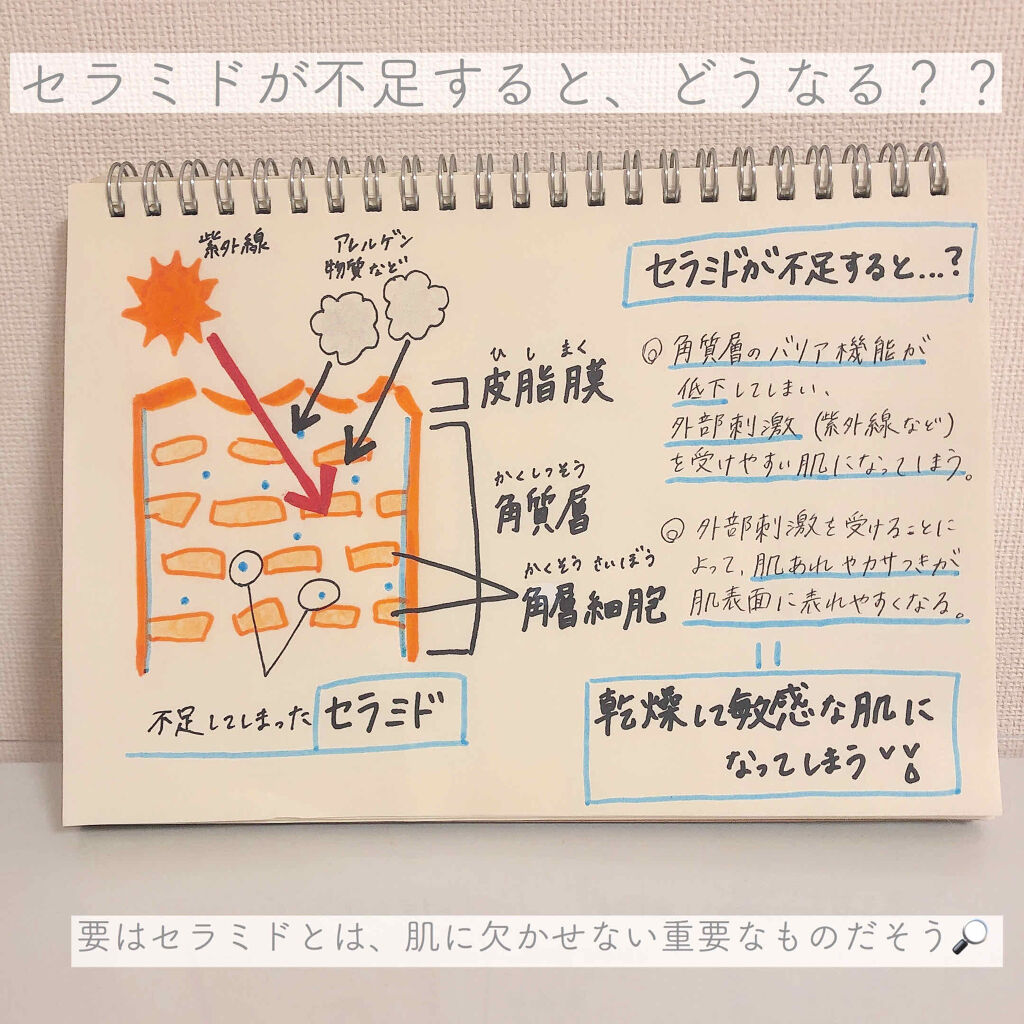 セラミドが不足すると、どうなる？？
紫外線
アレルゲン
物質など
セラミドが不足すると…？
ひしまく
皮脂膜
◎角質層のバリア機能が
低下してしまい、
外部刺激(紫外線など)
を受けやすい肌になってしまう。
かくしつそう
角質層
◎外部刺激を受けることに
よって、肌あれやカサつきが
肌表面に表れやすくなる。
かくそうさいぼう
角層細胞
不足してしまったセラミド
乾燥して敏感な肌に
なってしまう
要はセラミドとは、肌に欠かせない重要なものだそう🔎